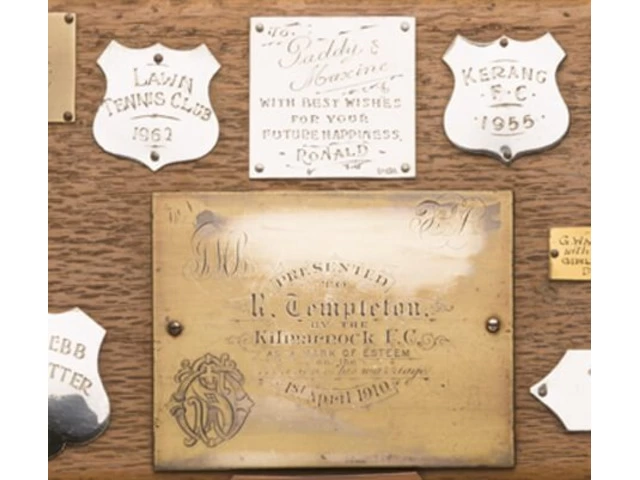 LAWN
TENNIS CLUB
1962
To.
Paddy &
Maxine
WITH BEST WISHES
FOR YOUR
FUTURE HAPPINESS.
- RONALD -
KERANG
· F · C ·
· 1955 ·
PRESENTED
TO
R. Templeton.
BY THE
Kilmarnock F.C.
AS A MARK OF ESTEEM
ON THE
his marriage
1st April 1910.
EBB
TTER
G.W
with
GIRL